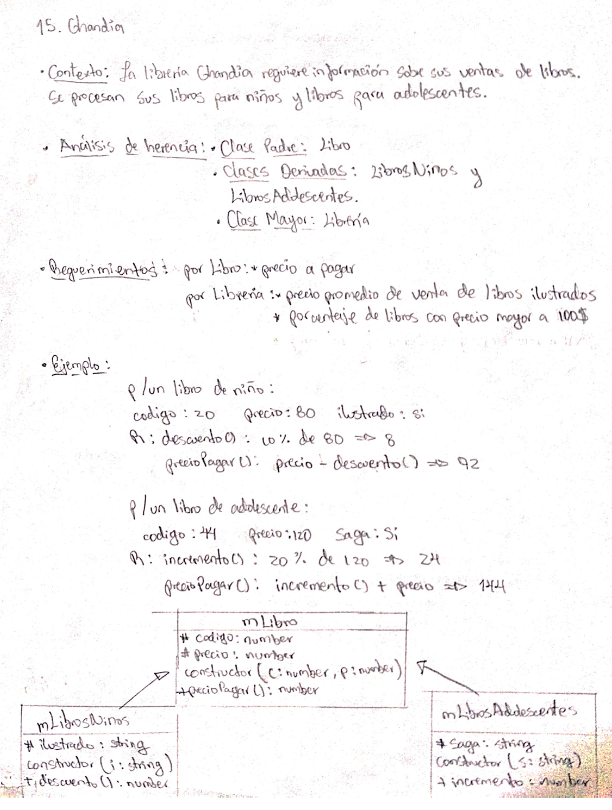 15. Ghandia
• Contexto: La librería Ghandia requiere información sobre sus ventas de libros.
Se procesan sus libros para niños y libros para adolescentes.
• Análisis de herencia: • Clase Padre: Libro
• Clases Derivadas: LibrosNinos y
LibrosAdolescentes.
• Clase Mayor: Librería
• Requerimientos: por Libro: * precio a pagar
por Librería: * precio promedio de venta de libros ilustrados
* porcentaje de libros con precio mayor a 100$
• Ejemplo:
p/un libro de niño:
codigo: 20 precio: 80 ilustrado: si
R: descuento(): 10% de 80 => 8
precioPagar(): precio - descuento() => 92
p/un libro de adolescente:
codigo: 44 precio: 120 Saga: Si
R: incremento(): 20% de 120 => 24
precioPagar(): incremento() + precio => 144
mLibro
# codigo: number
# precio: number
constructor (c: number, p: number)
+precioPagar(): number
mLibrosNinos
# ilustrado: string
constructor (i: string)
+ descuento(): number
mLibrosAdolescentes
# Saga: string
constructor (s: string)
+ incremento: number